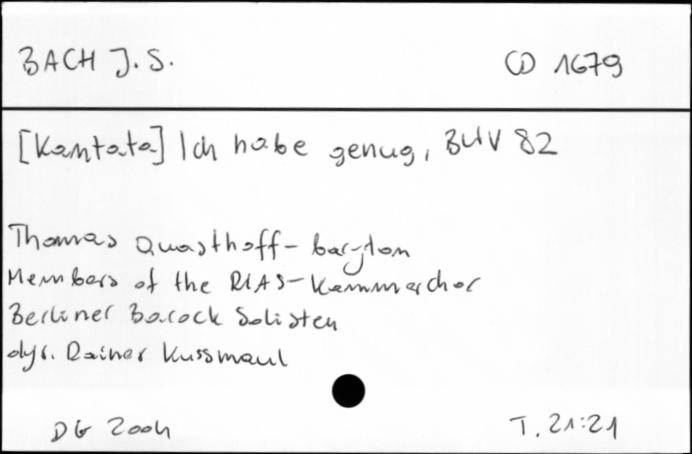 BACH J.S. CD 1679
[Kantata] Ich habe genug, BWV 82
Thomas Quasthoff - baryton
Members of the RIAS-Kammerchor
Berliner Barock Solisten
dyr. Rainer Kussmaul
DG 2004 T. 21:21